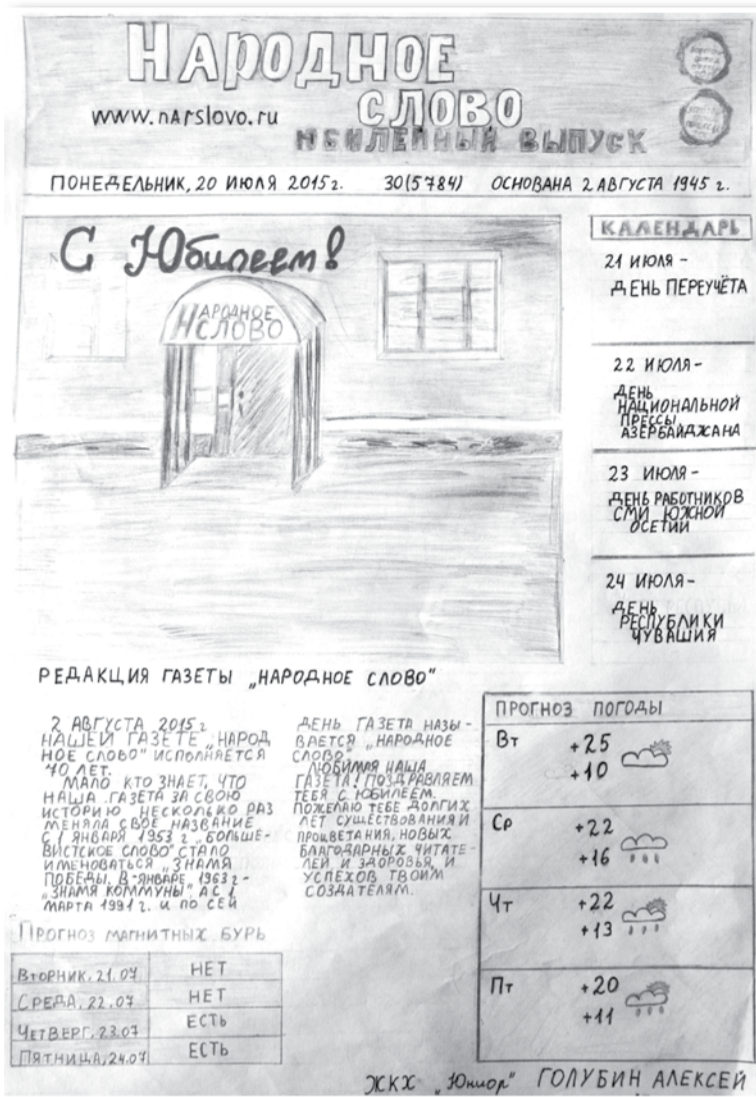 НАРОДНОЕ
СЛОВО
www.narslovo.ru
ЮБИЛЕЙНЫЙ ВЫПУСК
ПОНЕДЕЛЬНИК, 20 ИЮЛЯ 2015г. 30(5784) ОСНОВАНА 2 АВГУСТА 1945 г.
С Юбилеем!
НАРОДНОЕ
СЛОВО
КАЛЕНДАРЬ
21 ИЮЛЯ -
ДЕНЬ ПЕРЕУЧЁТА
22 ИЮЛЯ -
ДЕНЬ
НАЦИОНАЛЬНОЙ
ПРЕССЫ
АЗЕРБАЙДЖАНА
23 ИЮЛЯ -
ДЕНЬ РАБОТНИКОВ
СМИ ЮЖНОЙ
ОСЕТИИ
24 ИЮЛЯ -
ДЕНЬ
РЕСПУБЛИКИ
ЧУВАШИЯ
РЕДАКЦИЯ ГАЗЕТЫ „НАРОДНОЕ СЛОВО"
2 АВГУСТА 2015г
НАШЕЙ ГАЗЕТЕ „НАРОД
НОЕ СЛОВО" ИСПОЛНЯЕТСЯ
70 ЛЕТ.
МАЛО КТО ЗНАЕТ, ЧТО
НАША ГАЗЕТА ЗА СВОЮ
ИСТОРИЮ НЕСКОЛЬКО РАЗ
МЕНЯЛА СВОЕ НАЗВАНИЕ
С 1 ЯНВАРЯ 1953 г „БОЛЬШЕ-
ВИСТСКОЕ СЛОВО" СТАЛО
ИМЕНОВАТЬСЯ „ЗНАМЯ
ПОБЕДЫ. В ЯНВАРЕ 1963 г -
„ЗНАМЯ КОММУНЫ" А С 1
МАРТА 1991 г. И ПО СЕЙ
ДЕНЬ ГАЗЕТА НАЗЫ-
ВАЕТСЯ „НАРОДНОЕ
СЛОВО"
ЛЮБИМАЯ НАША
ГАЗЕТА! ПОЗДРАВЛЯЕМ
ТЕБЯ С ЮБИЛЕЕМ.
ПОЖЕЛАЮ ТЕБЕ ДОЛГИХ
ЛЕТ СУЩЕСТВОВАНИЯ И
ПРОЦВЕТАНИЯ, НОВЫХ
БЛАГОДАРНЫХ ЧИТАТЕ-
ЛЕЙ, И ЗДОРОВЬЯ, И
УСПЕХОВ ТВОИМ
СОЗДАТЕЛЯМ.
ПРОГНОЗ ПОГОДЫ
Вт +25
+10
Ср +22
+16
Чт +22
+13
Пт +20
+11
ПРОГНОЗ МАГНИТНЫХ БУРЬ
ВТОРНИК, 21.07 НЕТ
СРЕДА, 22.07 НЕТ
ЧЕТВЕРГ, 23.07 ЕСТЬ
ПЯТНИЦА, 24.07 ЕСТЬ
ЖКХ „Юниор" ГОЛУБИН АЛЕКСЕЙ